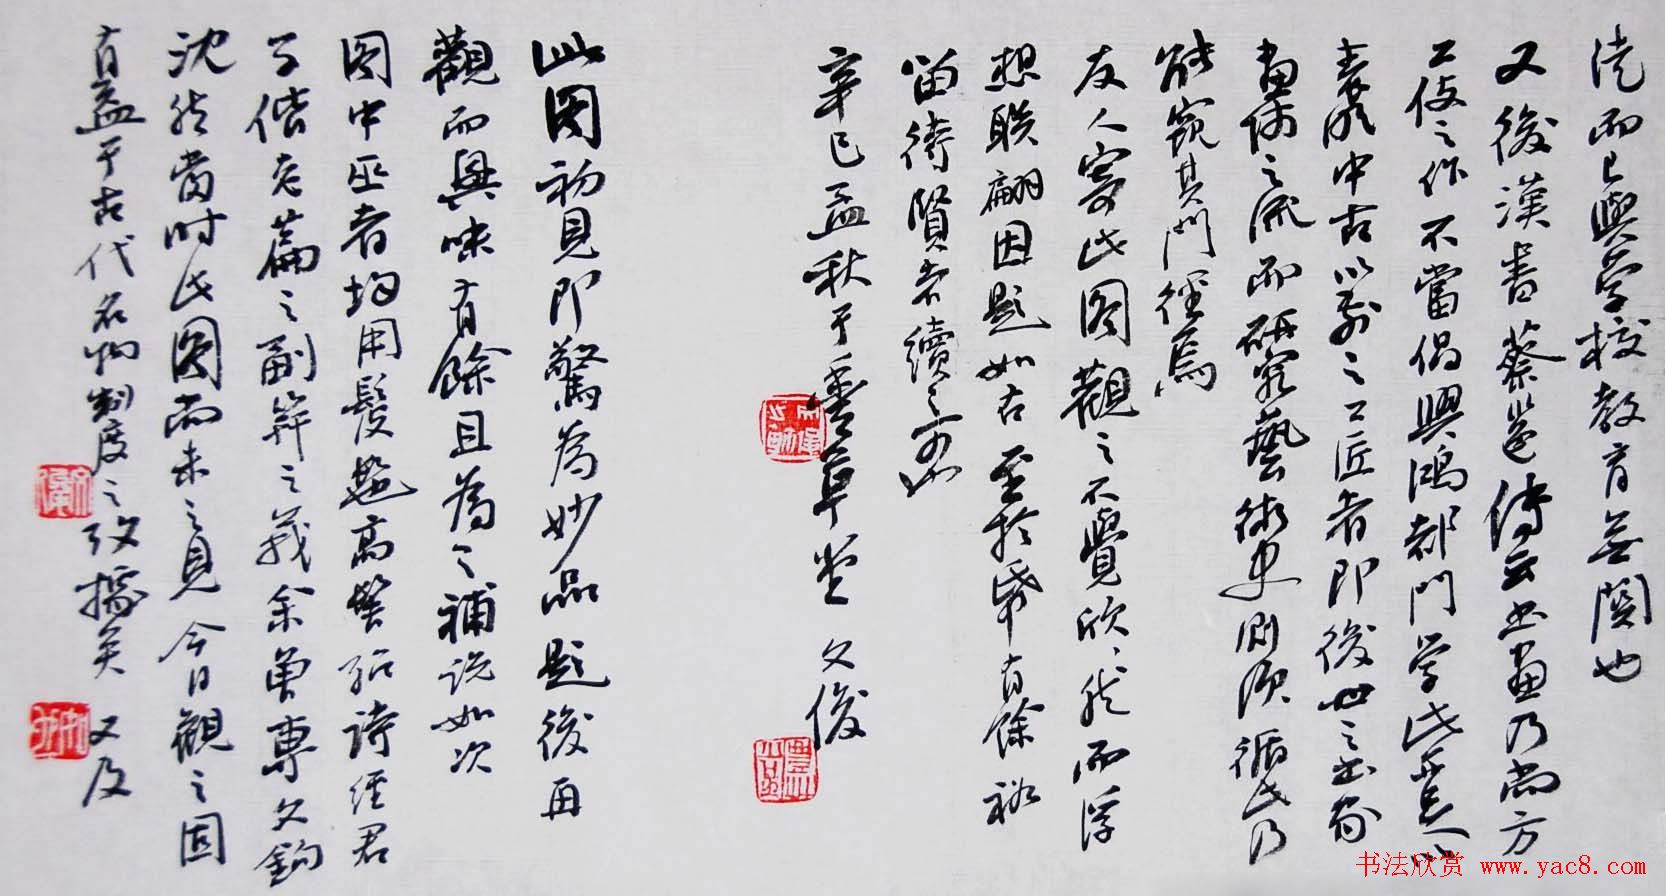 而已與學校教育無關也
又後漢書蔡邕傳云書畫乃尚方
工伎之作不當倡興鴻都門學此足以
表明中古以前之工匠者即後世之書家
畫師之流而研究藝術史則須循此乃
能窺其門徑焉
友人寄此圖觀之不覺欣然而浮
想聯翩因題如右至於紙有餘裕
留待賢者續之可也
辛巳孟秋于雲草堂 文俊
此圖初見即驚為妙品題後再
觀而興味有餘且為之補說如次
圖中巫者均用髲髢高髻詒詩經君
子偕老篇之副笄之義余曾專文鉤
沈然當時此圖尚未之見今日觀之固
有益于古代名物制度之考據矣 又及
书法欣赏 www.yac8.com